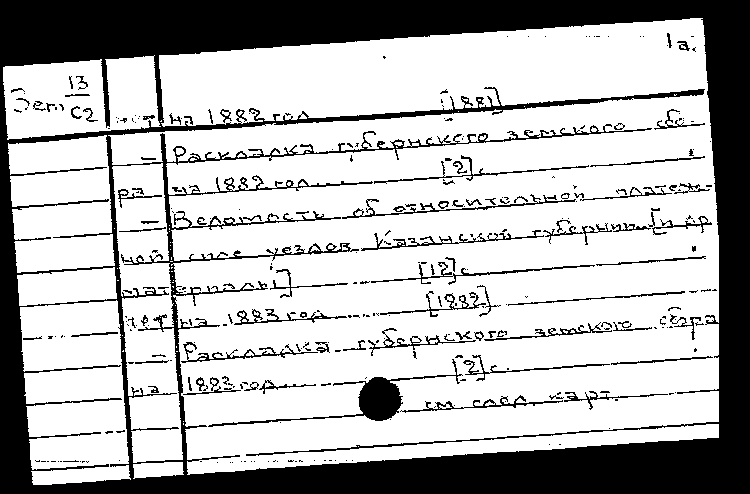 1а.
Зем 13
С2
чет на 1882 год [1881]
– Раскладка губернского земского сбо-
ра на 1882 год... [2]с.
– Ведомость об относительной платеж-
ной силе уездов Казанской губернии... [и др.
материалы] [12]с.
чет на 1883 год [1882]
– Раскладка губернского земского сбора
на 1883 год... [2]с.
см след. карт.